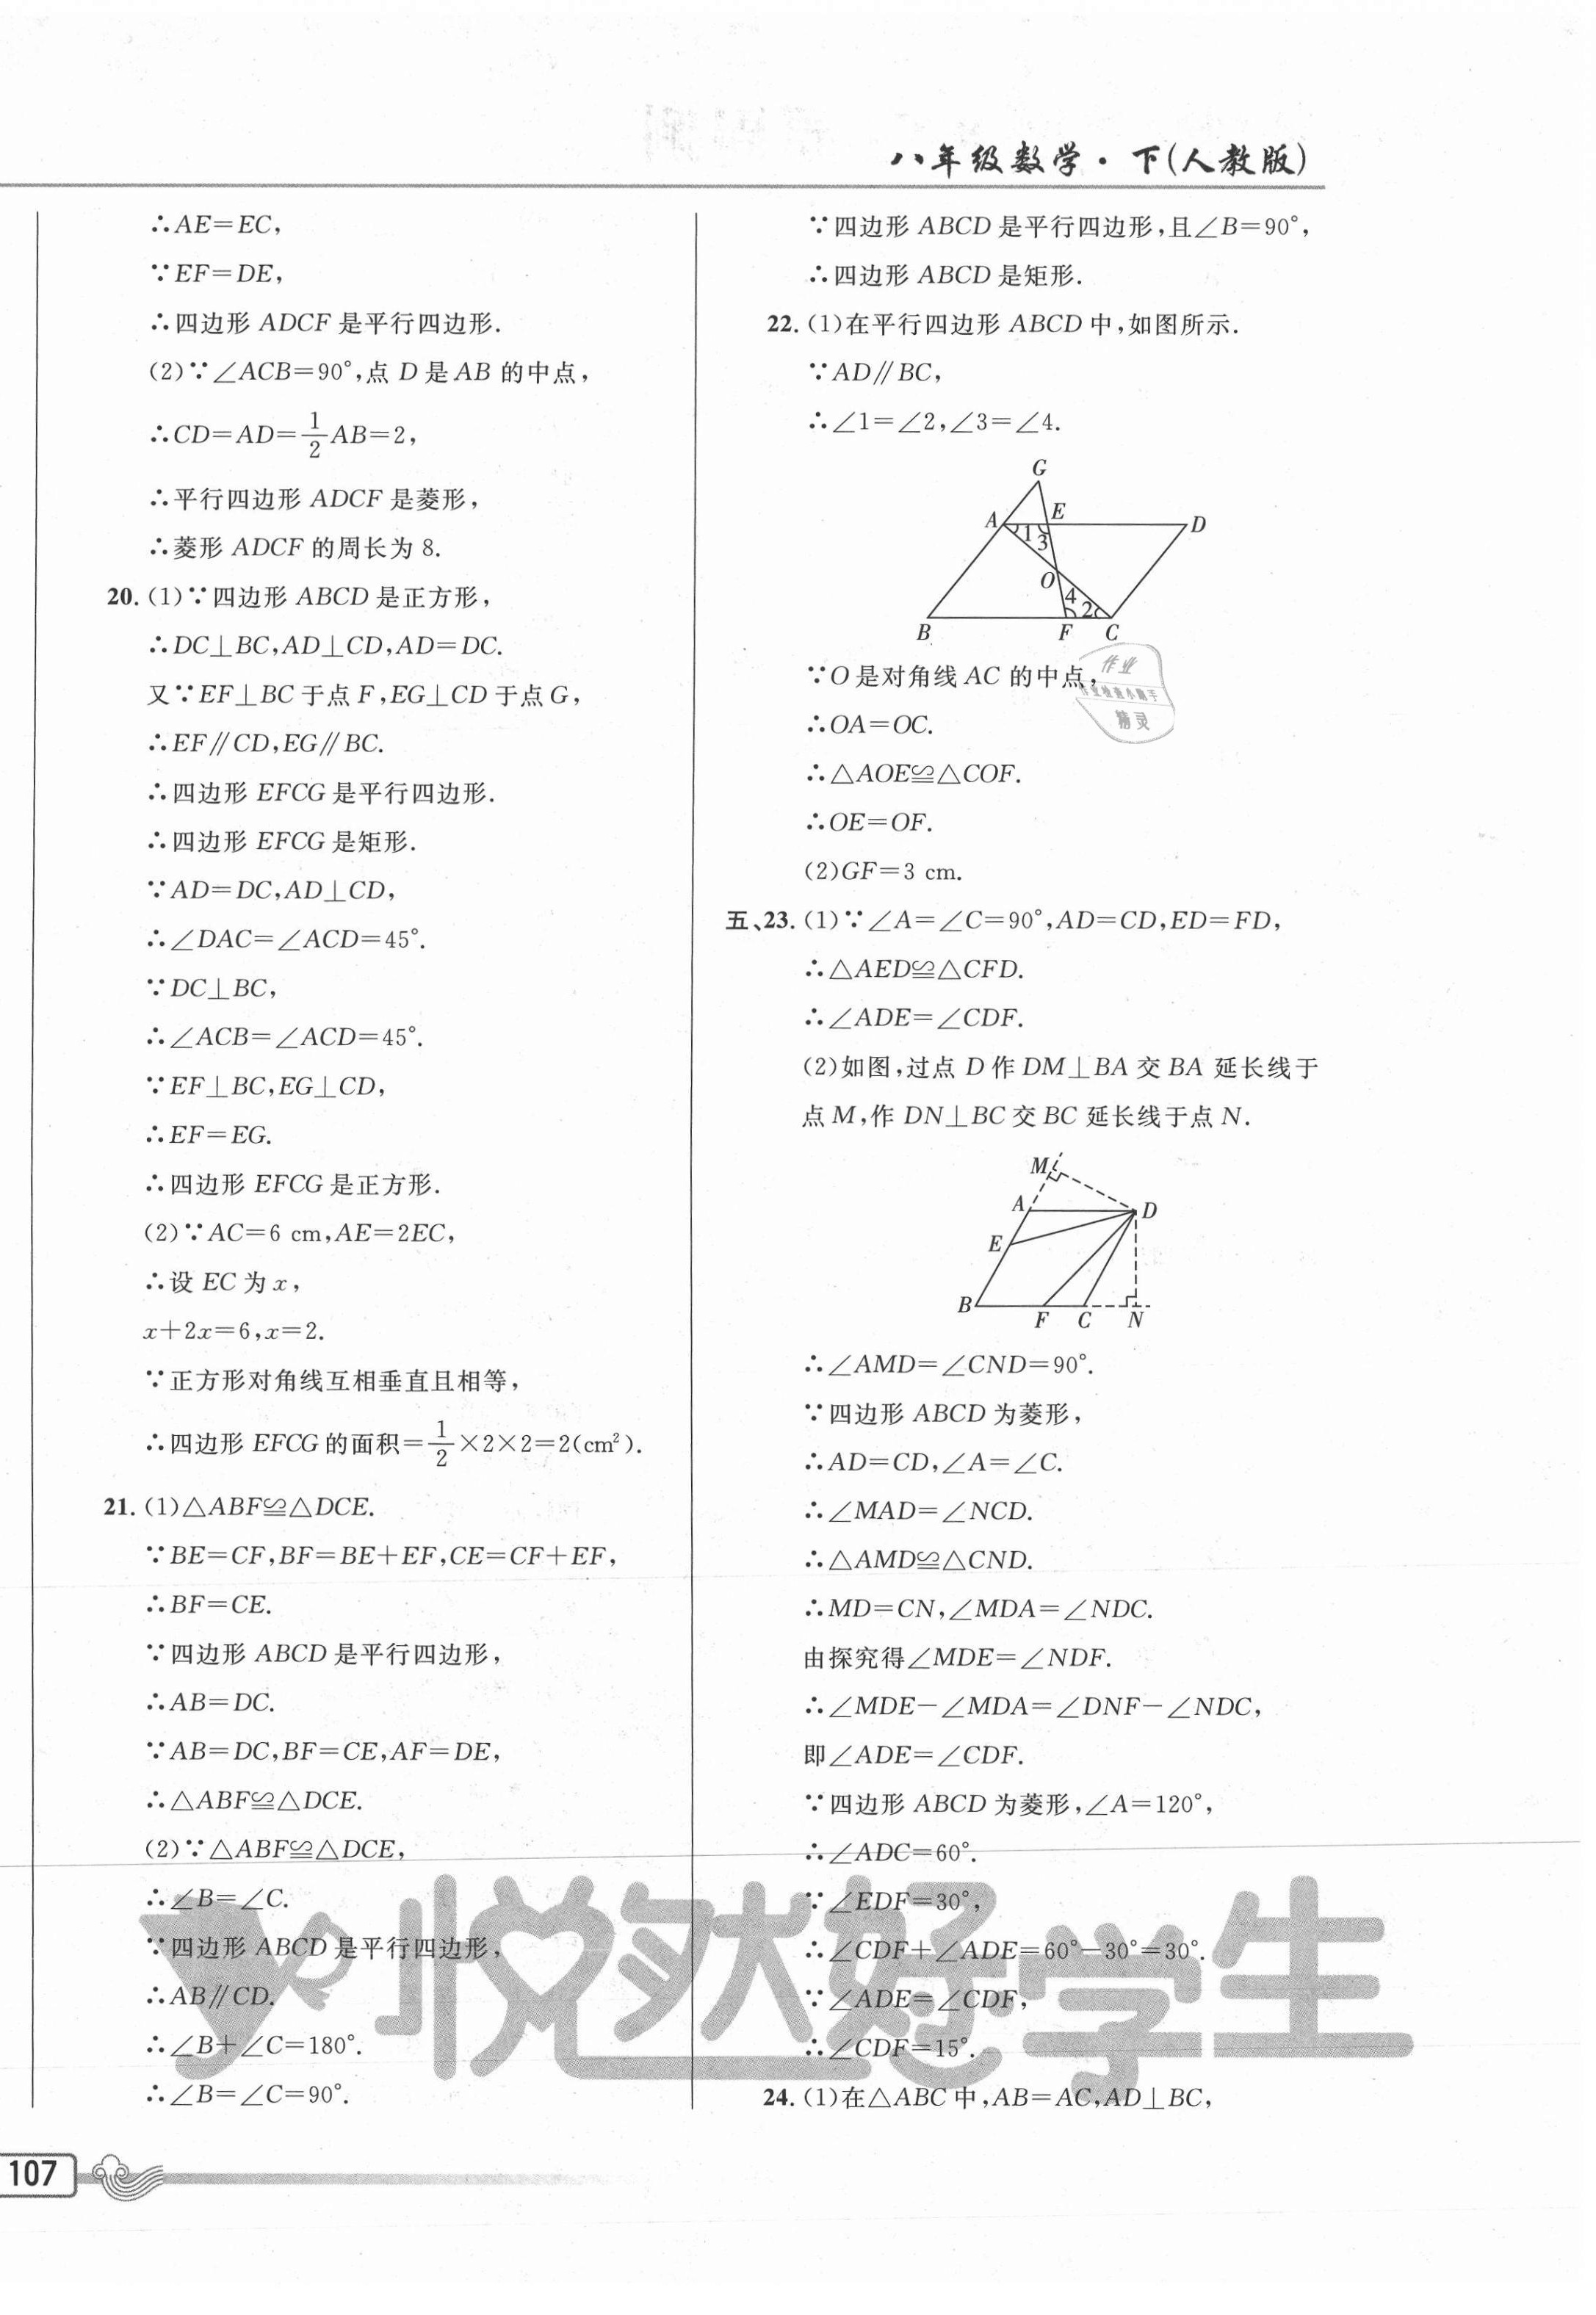 八年级数学·下(人教版)
∴AE=EC,
∵EF=DE,
∴四边形 ADCF 是平行四边形.
(2)∵∠ACB=90°,点 D 是 AB 的中点,
∴CD=AD=1/2AB=2,
∴平行四边形 ADCF 是菱形,
∴菱形 ADCF 的周长为 8.
20.(1)∵四边形 ABCD 是正方形,
∴DC⊥BC,AD⊥CD,AD=DC.
又∵EF⊥BC 于点 F,EG⊥CD 于点 G,
∴EF∥CD,EG∥BC.
∴四边形 EFCG 是平行四边形.
∴四边形 EFCG 是矩形.
∵AD=DC,AD⊥CD,
∴∠DAC=∠ACD=45°.
∵DC⊥BC,
∴∠ACB=∠ACD=45°.
∵EF⊥BC,EG⊥CD,
∴EF=EG.
∴四边形 EFCG 是正方形.
(2)∵AC=6 cm,AE=2EC,
∴设 EC 为 x,
x+2x=6,x=2.
∵正方形对角线互相垂直且相等,
∴四边形 EFCG 的面积=1/2×2×2=2(cm²).
21.(1)△ABF≌△DCE.
∵BE=CF,BF=BE+EF,CE=CF+EF,
∴BF=CE.
∵四边形 ABCD 是平行四边形,
∴AB=DC.
∵AB=DC,BF=CE,AF=DE,
∴△ABF≌△DCE.
(2)∵△ABF≌△DCE,
∴∠B=∠C.
∵四边形 ABCD 是平行四边形,
∴AB∥CD.
∴∠B+∠C=180°.
∴∠B=∠C=90°.
∵四边形 ABCD 是平行四边形,且∠B=90°,
∴四边形 ABCD 是矩形.
22.(1)在平行四边形 ABCD 中,如图所示.
∵AD∥BC,
∴∠1=∠2,∠3=∠4.
G
A E D
1 3
O
4 2
B F C
∵O 是对角线 AC 的中点,
∴OA=OC.
∴△AOE≌△COF.
∴OE=OF.
(2)GF=3 cm.
作业
精灵
五、23.(1)∵∠A=∠C=90°,AD=CD,ED=FD,
∴△AED≌△CFD.
∴∠ADE=∠CDF.
(2)如图,过点 D 作 DM⊥BA 交 BA 延长线于
点 M,作 DN⊥BC 交 BC 延长线于点 N.
M
A D
E
B F C N
∴∠AMD=∠CND=90°.
∵四边形 ABCD 为菱形,
∴AD=CD,∠A=∠C.
∴∠MAD=∠NCD.
∴△AMD≌△CND.
∴MD=CN,∠MDA=∠NDC.
由探究得∠MDE=∠NDF.
∴∠MDE-∠MDA=∠DNF-∠NDC,
即∠ADE=∠CDF.
∵四边形 ABCD 为菱形,∠A=120°,
∴∠ADC=60°.
∵∠EDF=30°,
∴∠CDF+∠ADE=60°-30°=30°.
∵∠ADE=∠CDF,
∴∠CDF=15°.
24.(1)在△ABC 中,AB=AC,AD⊥BC,
悦然好学生
107